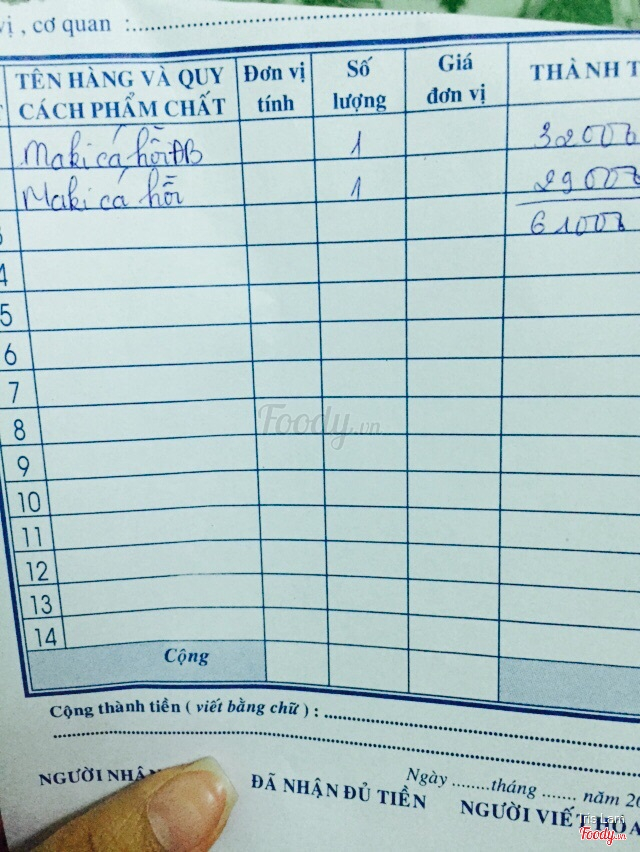 vị , cơ quan :
TÊN HÀNG VÀ QUY CÁCH PHẨM CHẤT
Đơn vị tính
Số lượng
Giá đơn vị
THÀNH T
Maki cá hồi ĐB 1 32000
Maki cá hồi 1 29000
3 61000
4
5
6
7
8
9
10
11
12
13
14
Cộng
Foody.vn
Cộng thành tiền ( viết bằng chữ ) :
Ngày ........tháng ....... năm 20
NGƯỜI NHẬN
ĐÃ NHẬN ĐỦ TIỀN
NGƯỜI VIẾT HÓA
Tris Lam
Foody.vn